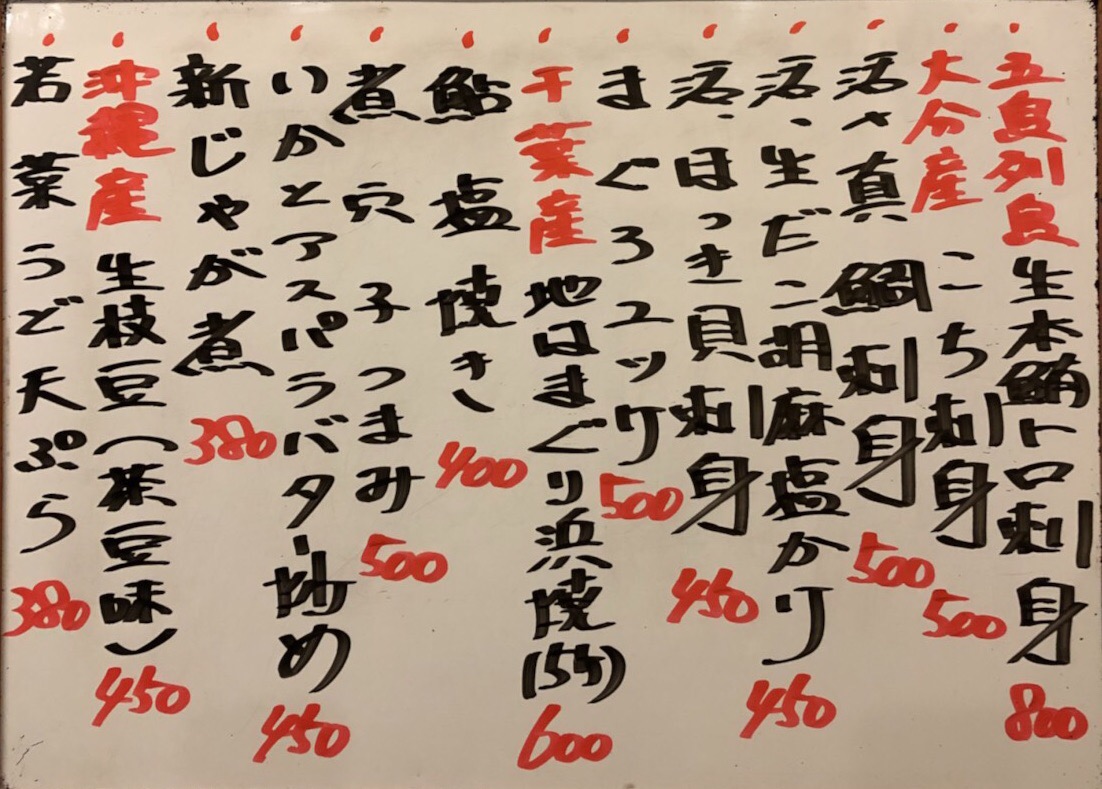 五島列島生本鮪トロ刺身 800
大分産こち刺身 500
活〆真鯛刺身 500
活、生だこ胡麻塩かり 450
活、ほっき貝刺身 450
まぐろユッケ 500
千葉産地はまぐり浜焼(5ケ) 600
鮎塩焼き 400
煮穴子つまみ 500
いかとアスパラバター炒め 450
新じゃが煮 380
沖縄産生枝豆(茶豆味) 450
若菜うど天ぷら 380